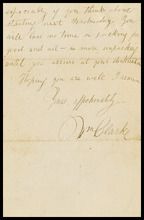 especially if you think about
starting next Wednesday. You
will lose no time in packing for
good and all — no more unpacking
until you arrive at your destination
Hoping you are well I remain
Yours affectionately
Wm Clarke